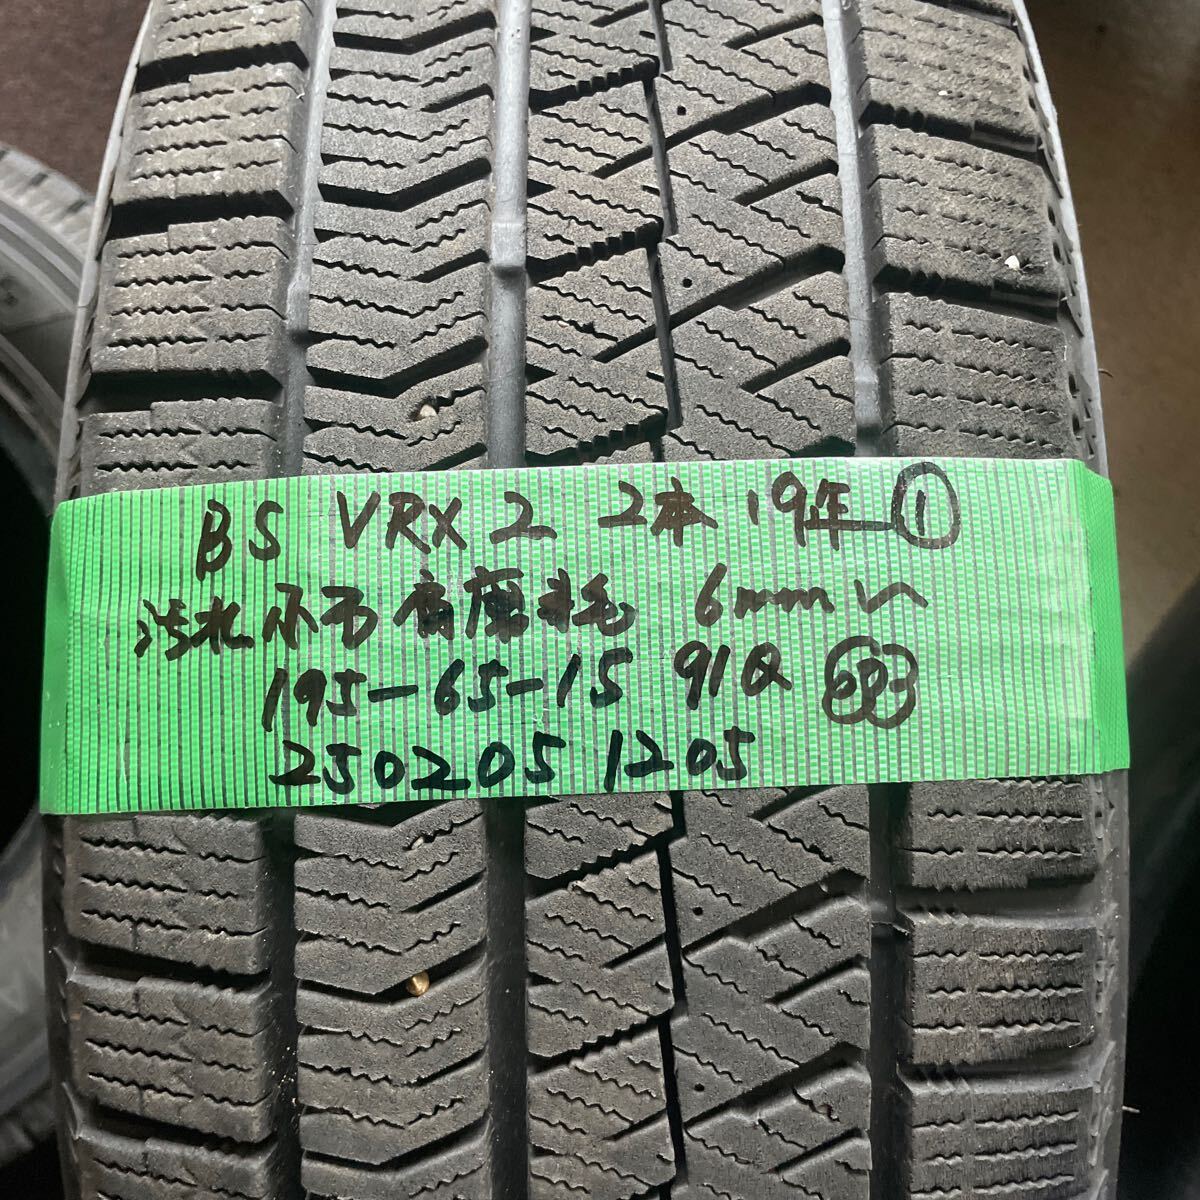 BS VRX2 2本 19年 ①
汚れ 小石 肩磨耗 6mm
195-65-15 91Q
250205 1205